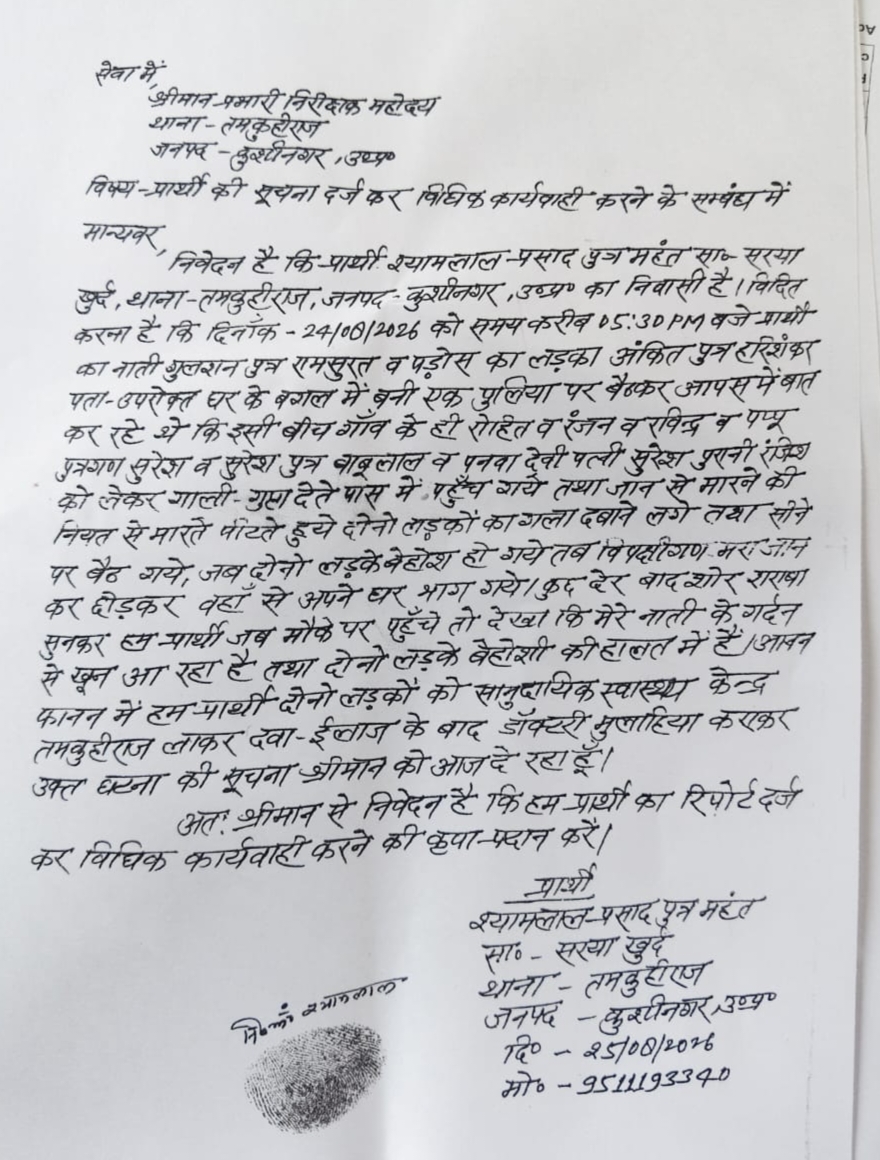 सेवा में,
श्रीमान प्रभारी निरीक्षक महोदय
थाना - तमकुहीराज
जनपद - कुशीनगर, उ०प्र०
विषय - प्रार्थी की सूचना दर्ज कर विधिक कार्यवाही करने के सम्बंध में
मान्यवर,
निवेदन है कि प्रार्थी श्यामलाल प्रसाद पुत्र महंत सा० सरया
खुर्द, थाना - तमकुहीराज, जनपद - कुशीनगर, उ०प्र० का निवासी है। विदित
करना है कि दिनाँक - 24/08/2026 को समय करीब 05:30 PM बजे प्रार्थी
का नाती गुलशन पुत्र रामसुरत व पड़ोस का लड़का अंकित पुत्र हरिशंकर
पता - उपरोक्त घर के बगल में बनी एक पुलिया पर बैठकर आपस में बात
कर रहे थे कि इसी बीच गाँव के ही रोहित व रंजन व रविन्द्र व पप्पू
पुत्रगण सुरेश व सुरेश पुत्र बाबूलाल व पनवा देवी पत्नी सुरेश पुरानी रंजिश
को लेकर गाली-गुप्ता देते पास में पहुँच गये तथा जान से मारने की
नियत से मारते पीटते हुये दोनो लड़कों का गला दबाने लगे तथा सीने
पर बैठ गये, जब दोनो लड़के बेहोश हो गये तब विपक्षीगण मरा जान
कर छोड़कर वहाँ से अपने घर भाग गये। कुछ देर बाद शोर शराबा
सुनकर हम प्रार्थी जब मौके पर पहुँचे तो देखा कि मेरे नाती के गर्दन
से खून आ रहा है तथा दोनो लड़के बेहोशी की हालत में हैं। आनन
फानन में हम प्रार्थी दोनो लड़कों को सामुदायिक स्वास्थ्य केन्द्र
तमकुहीराज लाकर दवा-ईलाज के बाद डॉक्टरी मुलाहिया कराकर
उक्त घटना की सूचना श्रीमान को आज दे रहा हूँ।
अतः श्रीमान से निवेदन है कि हम प्रार्थी का रिपोर्ट दर्ज
कर विधिक कार्यवाही करने की कृपा प्रदान करें।
प्रार्थी
श्यामलाल प्रसाद पुत्र महंत
सा० - सरया खुर्द
थाना - तमकुहीराज
जनपद - कुशीनगर, उ०प्र०
दि० - 25/08/2026
मो० - 9511193340
नि० आं श्यामलाल